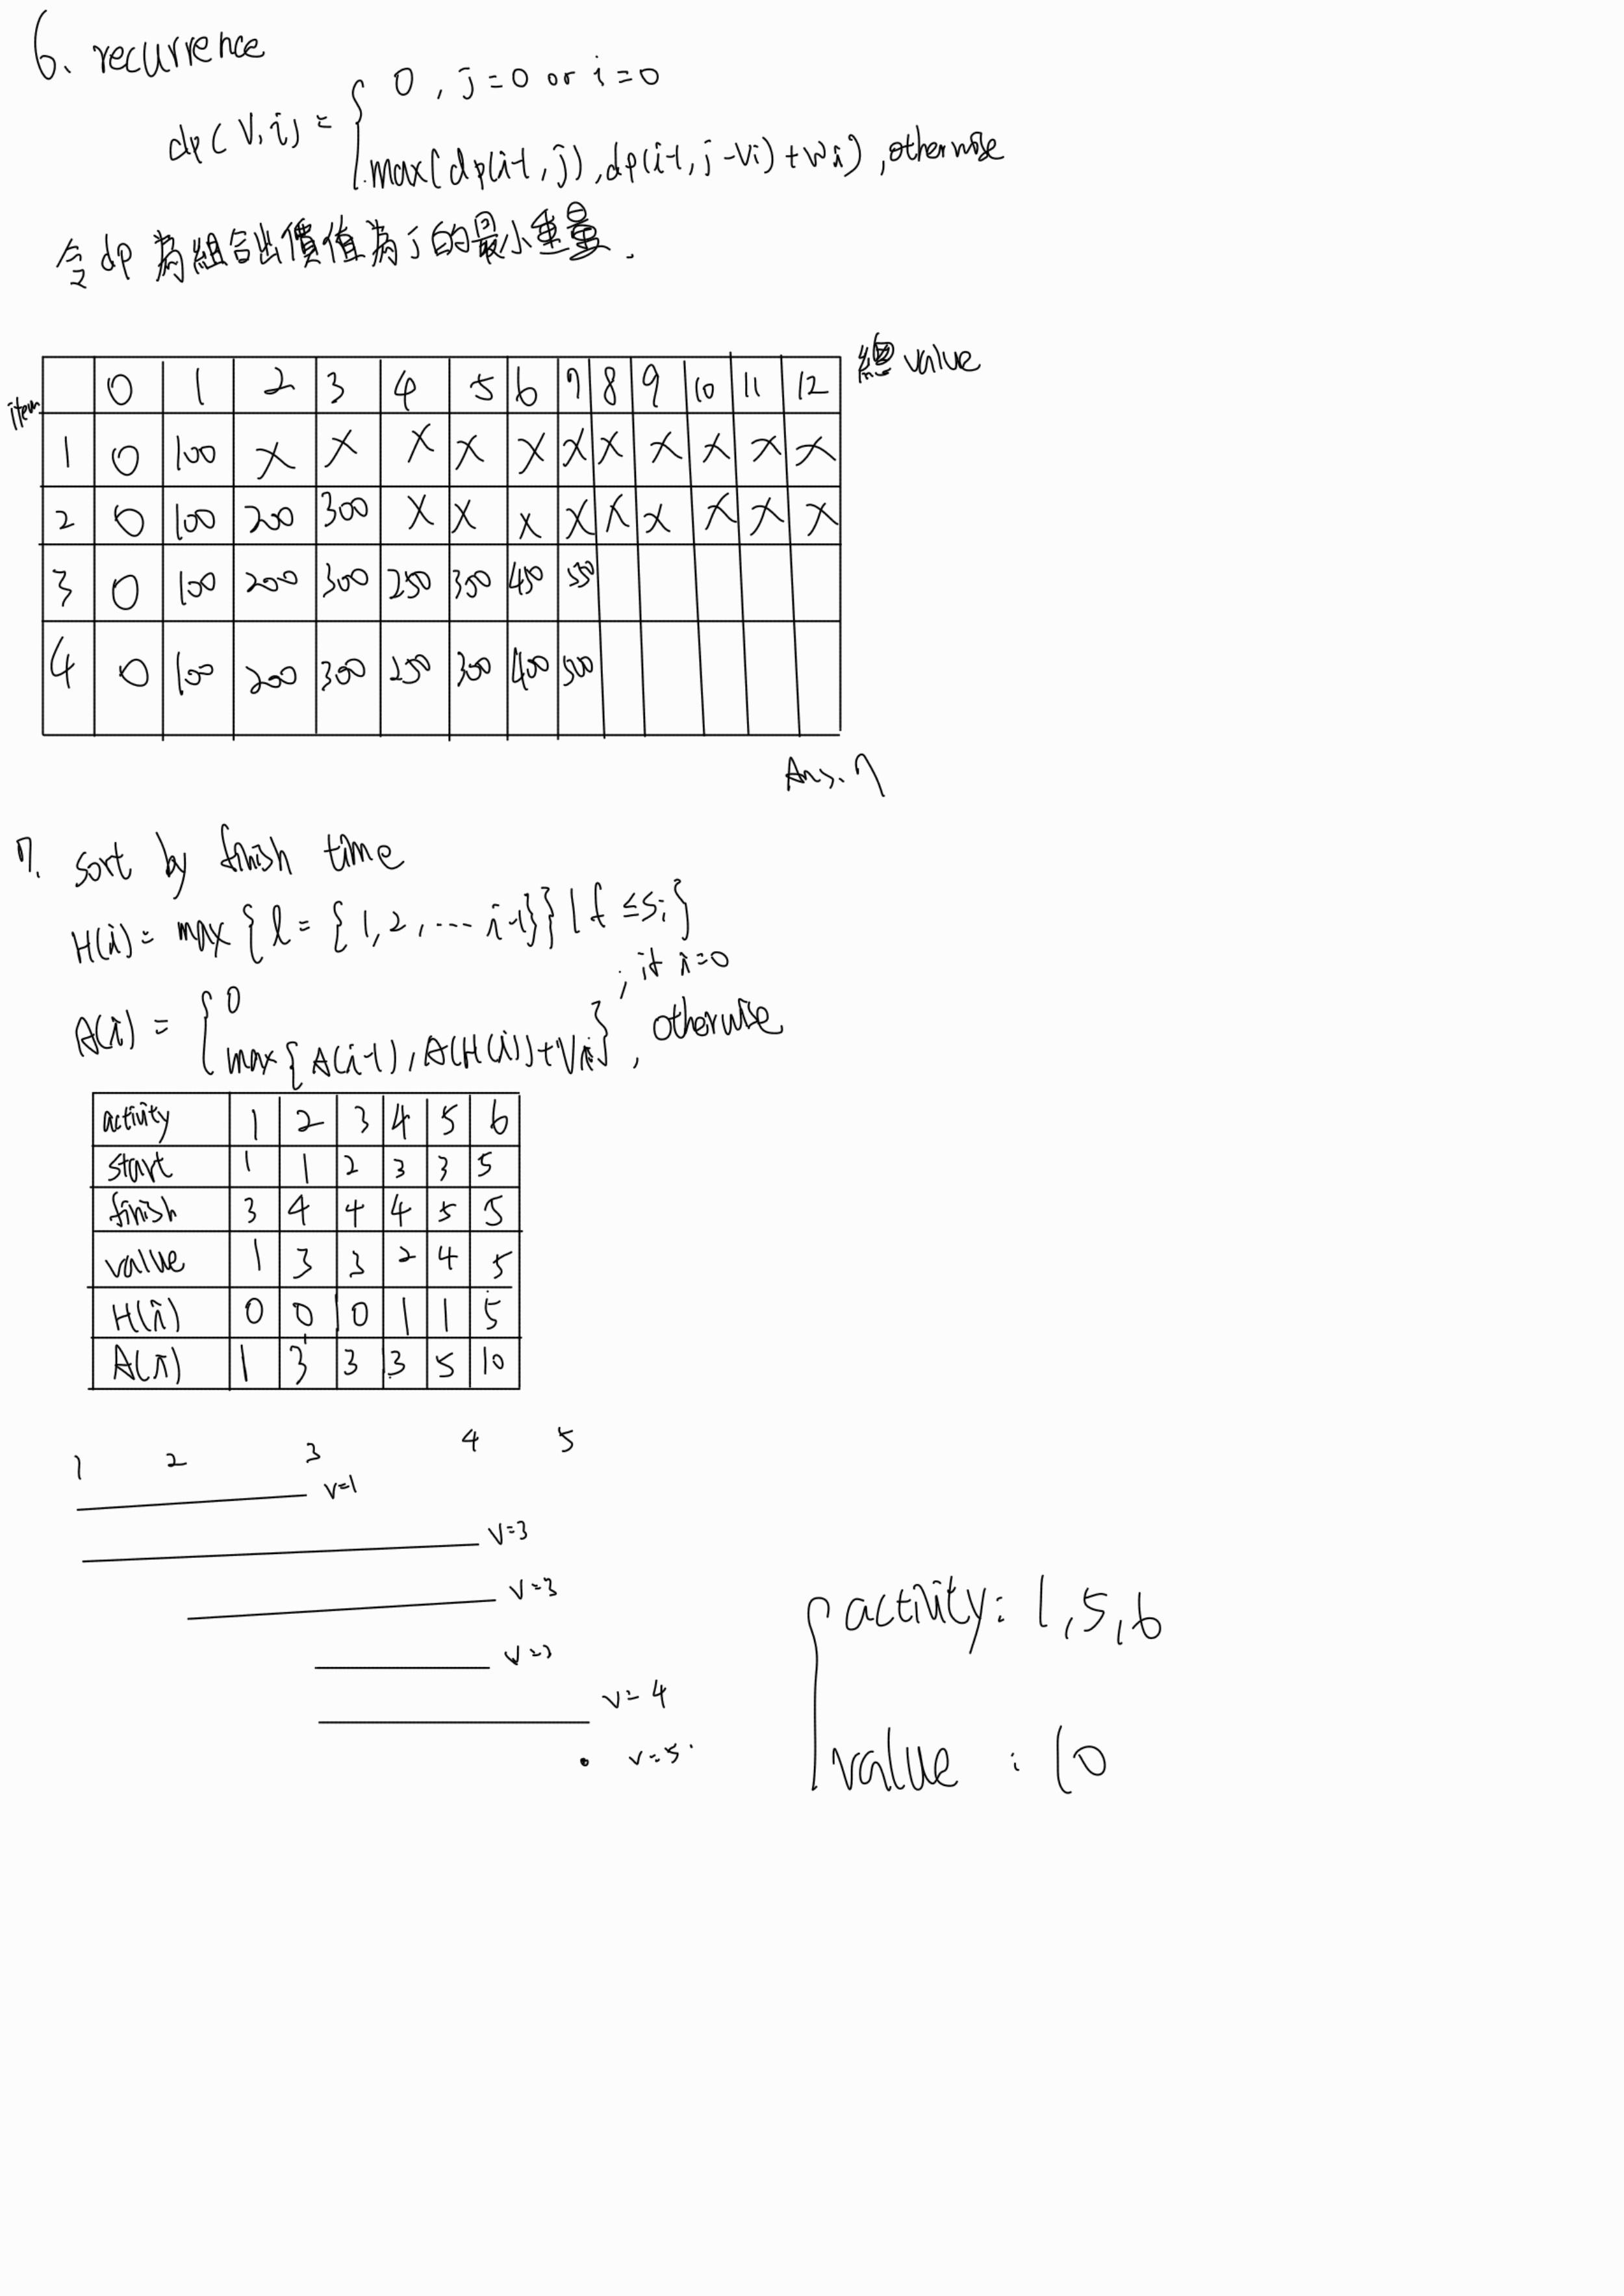 6. recurrence
dp(V,i) = { 0 , j=0 or i=0
max(dp(i-1, j), dp(i-1, j-Vi)+wi), otherwise
令dp 為組合出價值為j的最小重量.
總value
item
0 1 2 3 4 5 6 7 8 9 10 11 12
1 0 100 X X X X X X X X X X X
2 0 100 200 300 X X X X X X X X X
3 0 100 200 300 250 300 450 550
4 0 100 200 300 250 300 400 500
Ans. 7
7. sort by finish time
H(i) = max { l = { 1, 2, .... i-1}} | f ≤ si }
A(i) = { 0 , if i=0
max{ A(i-1), A(H(i))+Vi} , otherwise
activity 1 2 3 4 5 6
start 1 1 2 3 3 5
finish 3 4 4 4 5 5
value 1 3 3 2 4 5
H(i) 0 0 0 1 1 5
A(i) 1 3 3 3 5 10
1 2 3 4 5
v=1
v=3
v=3
v=2
v=4
v=5.
activity: 1, 5, 6
value : 10